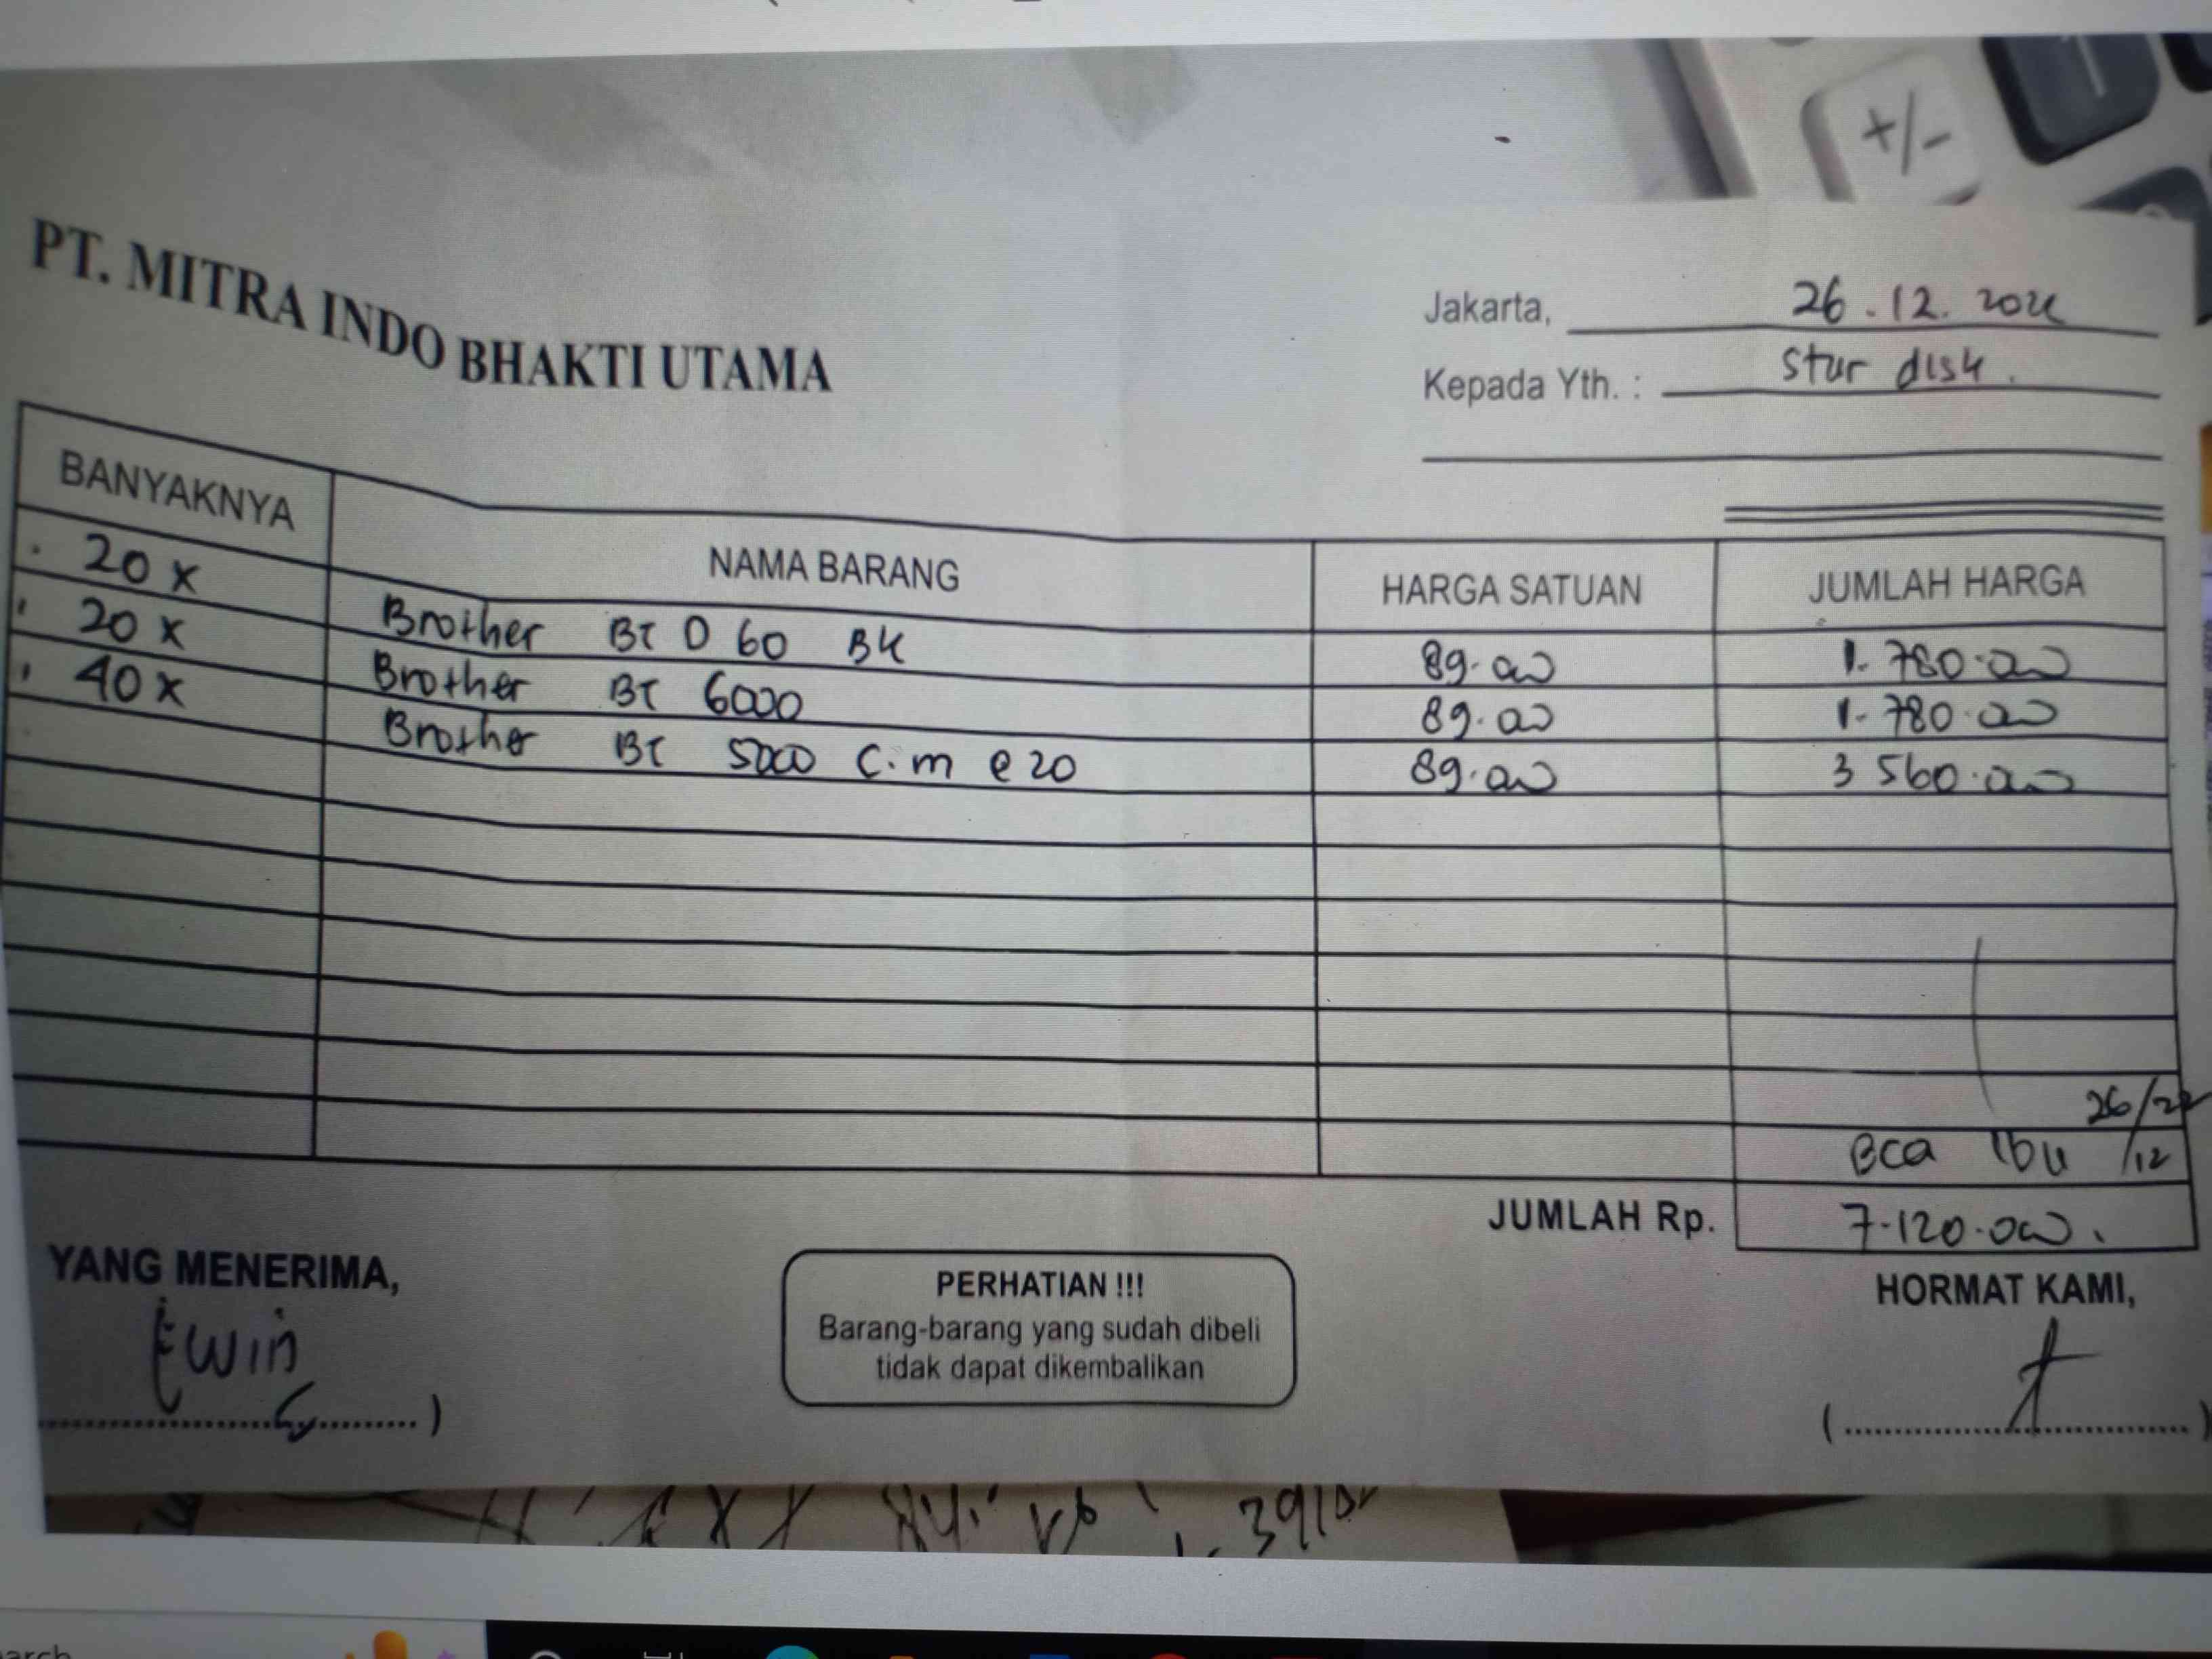 +/-
PT. MITRA INDO BHAKTI UTAMA
Jakarta, 26.12.
Kepada Yth. : Star disk.
BANYAKNYA NAMA BARANG HARGA SATUAN JUMLAH HARGA
20 x Brother BT D 60 BK 89.000 1.780.000
20 x Brother BT 6000 89.000 1.780.000
40 x Brother BT 5000 C.m @ 20 89.000 3 560.000
26/
BCA /12
JUMLAH Rp. 7.120.000.
YANG MENERIMA,
Ewin
PERHATIAN !!!
Barang-barang yang sudah dibeli
tidak dapat dikembalikan
HORMAT KAMI,